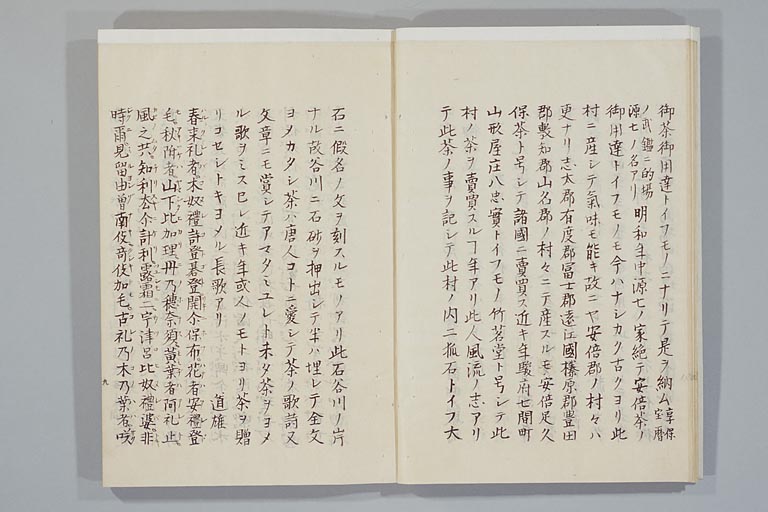 御茶御用達トイフモノニナリテ是ヲ納ム享保宝暦
ノ武鑑ニ的場源七ノ名アリ明和年中源七ノ家絶テ安倍茶ノ
御用達トイフモノモ今ハナシカク古クヨリ此
村ニ産シテ氣味モ能キ故ニヤ安倍郡ノ村々ハ
更ナリ志太郡有度郡冨士郡遠江國榛原郡豊田
郡敷知郡山名郡ノ村々ニテ産スルモ安倍足久
保茶ト号シテ諸國ニ賣買ス近キ年駿府七間町
山形屋庄八忠實トイフモノ竹茗堂ト号シテ此
村ノ茶ヲ賣買スルヿ年アリ此人風流ノ志アリ
テ此茶ノ事ヲ記シテ此村ノ内ニ狐石トイフ大
石ニ假名ノ文ヲ刻スルモノアリ此石谷川ノ岸
ナル故谷川ニ石砂ヲ押出シテ半ハ埋レテ全文
ヨメカタシ茶ハ唐人コトニ愛シテ茶ノ歌詩又
文章ニモ賞シテアマタミユレト未タ茶ヲヨメ
ル歌ヲミス已レ近キ年或人ノモトヨリ茶ヲ贈
リコセシトキヨメル長歌アリ 道雄
春来礼者木奴禮許登碁登開尒保布花者安禮登
毛秋附者山下比加理丹乃穂奈須黄葉者阿礼止
風之共知利奈尒計利露霜二宇津呂比奴禮婆非
時雨見留由曽南伎奇伎加毛古礼乃木乃葉者咲
九